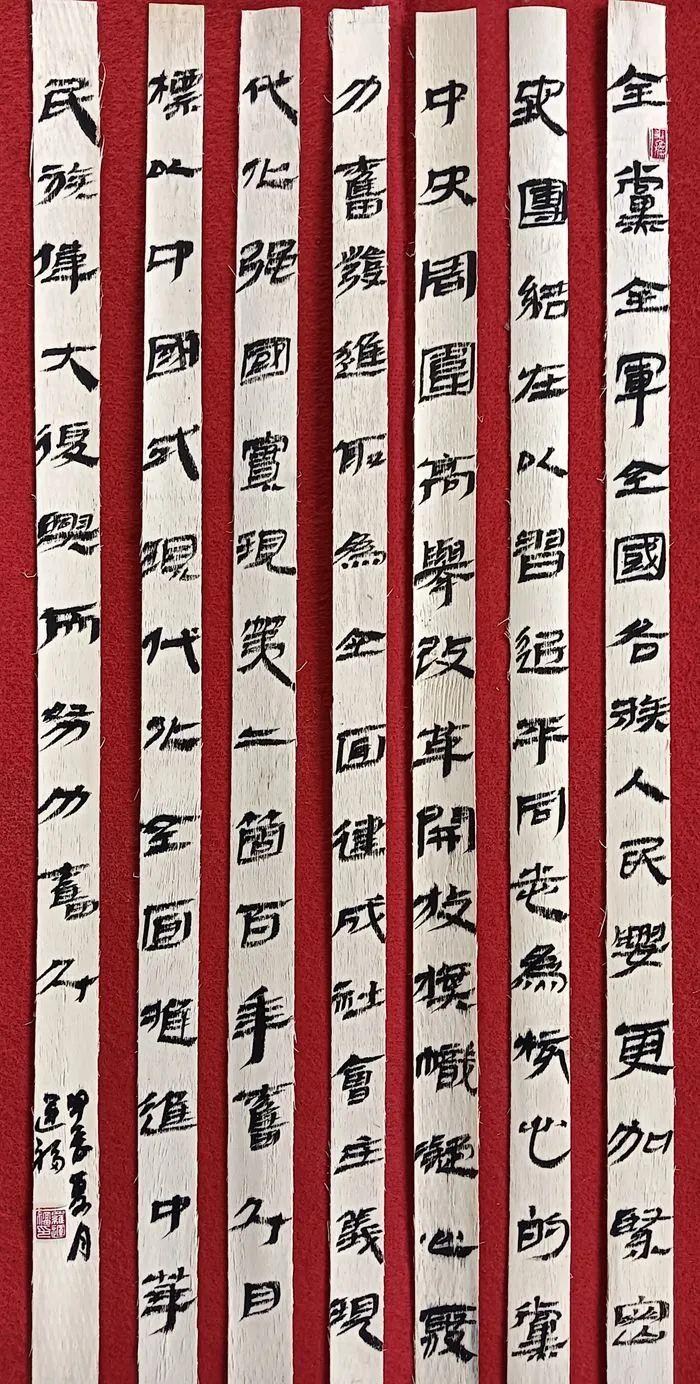 全黨全軍全國各族人民要更加緊密
地團結在以習近平同志為核心的黨
中央周圍高舉改革開放旗幟凝心聚
力奮發進取為全面建成社會主義現
代化强國實現第二箇百年奮斗目
標以中國式現代化全面推進中華
民族偉大復興而努力奮斗
甲辰夏月
運福